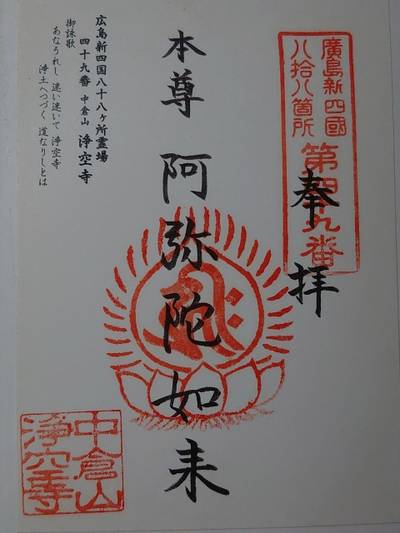 廣島新四國
八拾八箇所
第四九番
奉拝
本尊 阿弥陀如来
広島新四国八十八ヶ所霊場
四十九番 中倉山 浄空寺
御詠歌
あなうれし 迷い迷いて 浄空寺
浄土へつづく 道なりしとは
中倉山
浄空寺